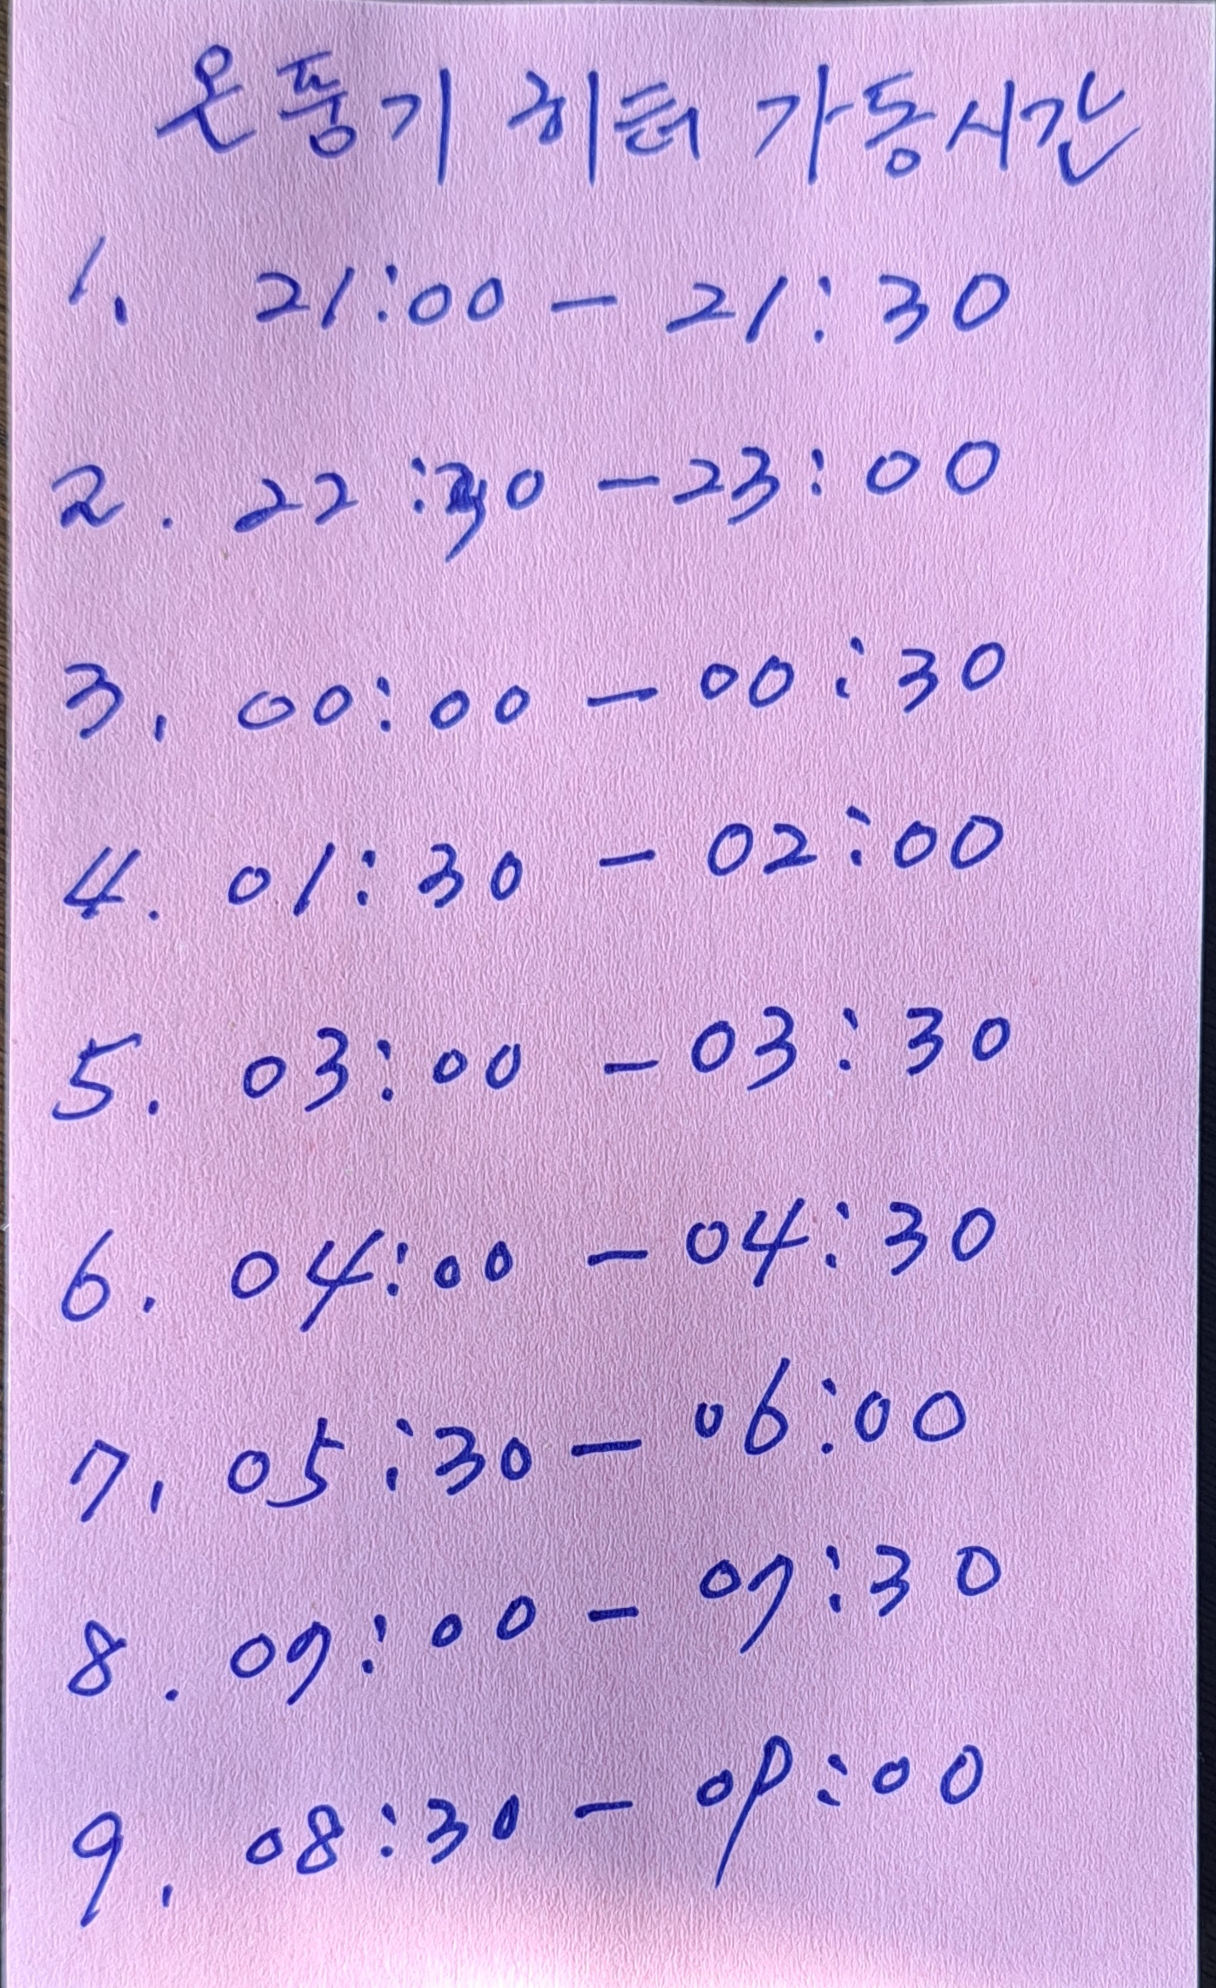 온풍기 히터 가동시간
1. 21:00 - 21:30
2. 22:30 - 23:00
3. 00:00 - 00:30
4. 01:30 - 02:00
5. 03:00 - 03:30
6. 04:00 - 04:30
7. 05:30 - 06:00
8. 07:00 - 07:30
9. 08:30 - 09:00